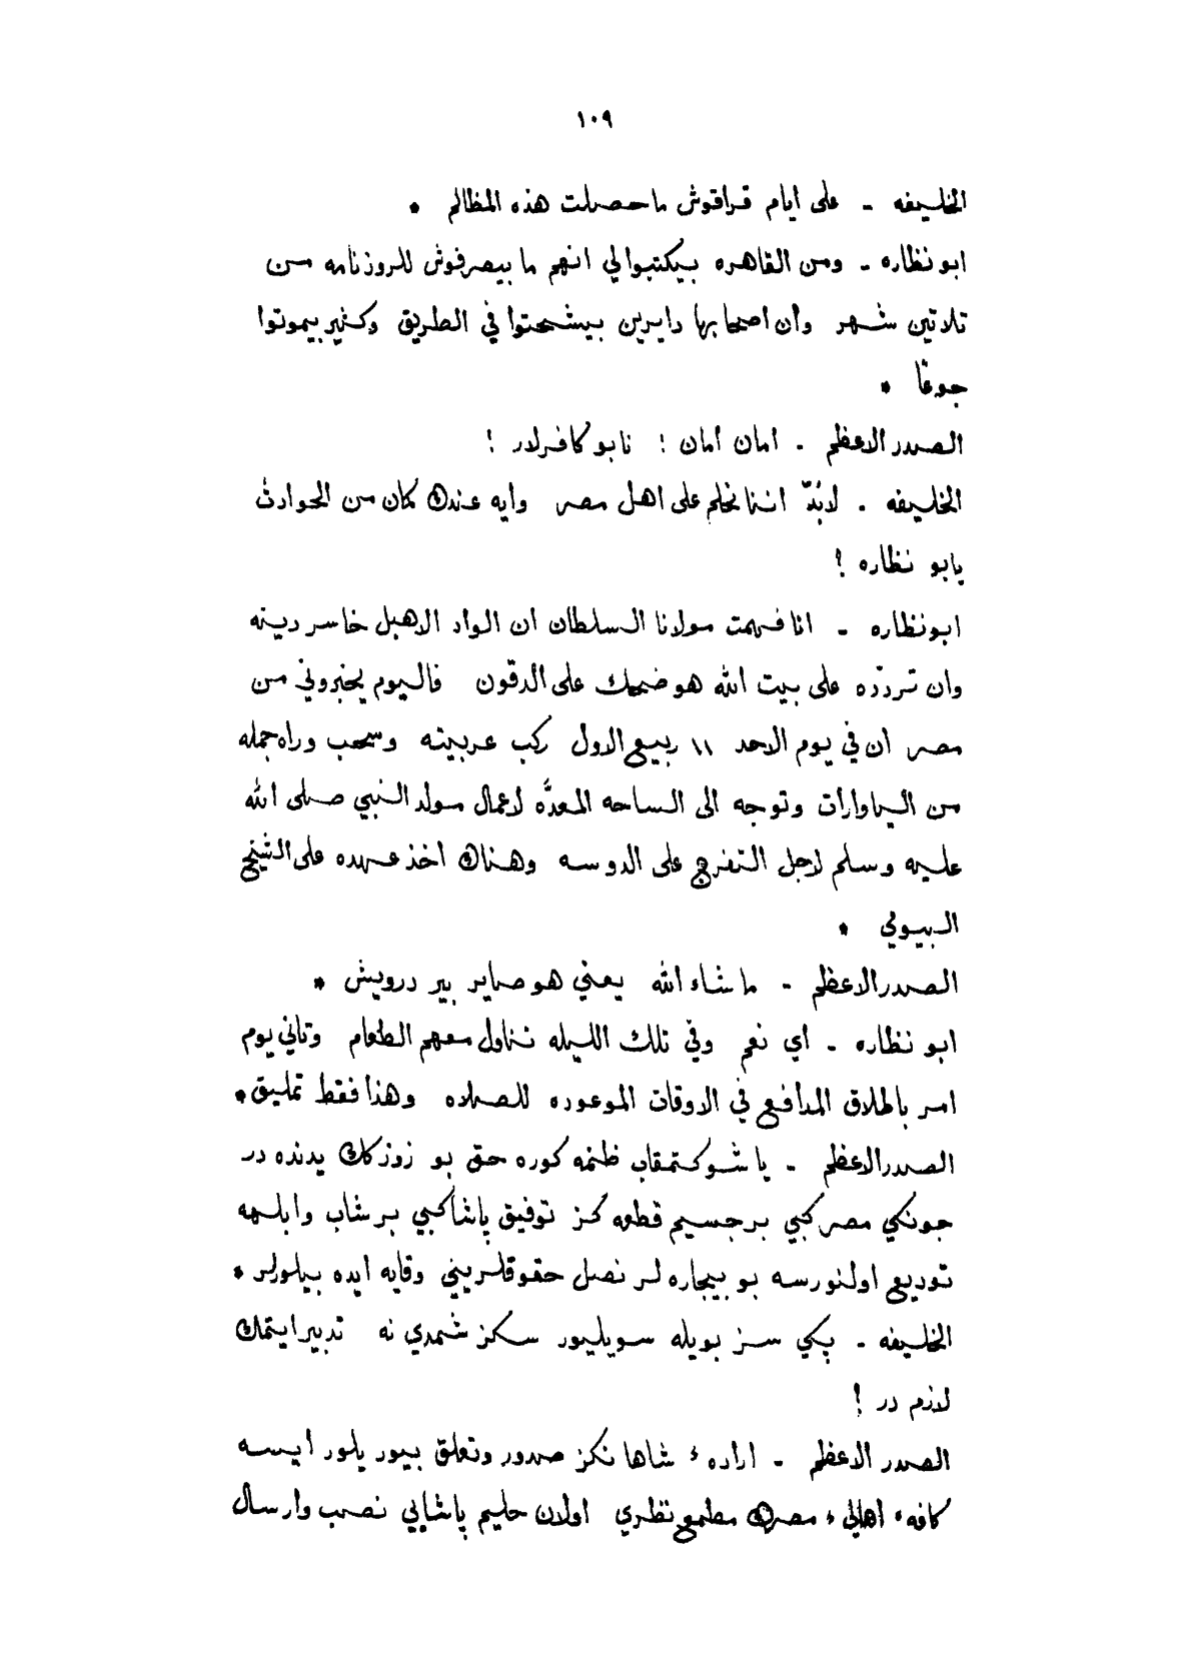 ١٠٩
الخليفه - على ايام قراقوش ما حصلت هذه المظالم *
ابو نظاره - ومن القاهره بيكتبوا لي انهم ما بيصرفوش للروزنامه من
تلاتين شهر وان اصحابها دايرين بيشحتوا في الطريق وكثير بيموتوا
جوعًا *
الصدر الاعظم - امان امان ! نابو كافرلدر !
الخليفه - لابُدّ اننا نحلم على اهل مصر وايه عندك كمان من الحوادث
يابو نظاره ؟
ابو نظاره - انا فهمت مولانا السلطان ان الواد الاهبل خاسر دينه
وان تردّده على بيت الله هو ضحك على الدقون فاليوم يخبروني من
مصر ان في يوم الاحد ١١ ربيع الاول ركب عربيته وسحب وراه جمله
من الياوارات وتوجه الى الساحه المعدَّه لاعمال مولد النبي صلى الله
عليه وسلم لاجل التفرج على الدوسه وهناك اخذ عهده على الشيخ
البيولي *
الصدر الاعظم - ما شاء الله يعني هو صاير بير درويش *
ابو نظاره - اي نعم وفي تلك الليله تناول معهم الطعام وتاني يوم
امر باطلاق المدافع في الاوقات الموعوره للصلاه وهذا فقط تمليق *
الصدر الاعظم - يا شوكتمقاب ظنمه كوره حق بو زوزكك يدنده در
جونكي مصر كبي بر جسيم قطعه كز توفيق پاشا كبي بر شاب وابلهه
توديع اولنورسه بو بيجاره لر نصل حقوقلريني وقايه ايده بيلورلر *
الخليفه - پكي سز بويله سويليور سكز شمدي نه تدبير ايتمك
لازم در !
الصدر الاعظم - ارادهء شاهانكز صدور وتعلق بيور يلور ايسه
كافهء اهاليء مصرك مطمع نظري اولان حليم پاشايي نصب وارسال